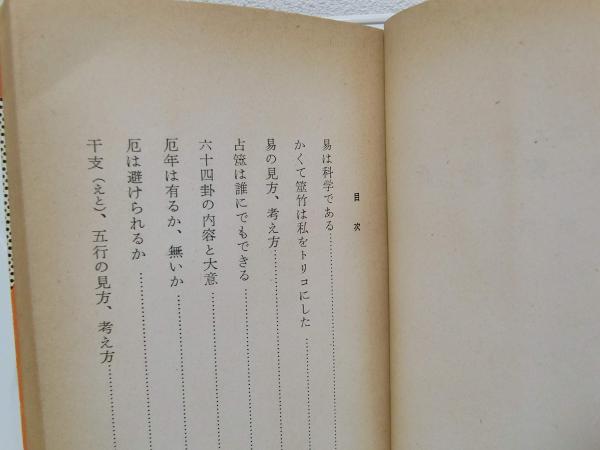 目次
易は科学である
かくて筮竹は私をトリコにした
易の見方、考え方
占筮は誰にでもできる
六十四卦の内容と大意
厄年は有るか、無いか
厄は避けられるか
干支（えと）、五行の見方、考え方